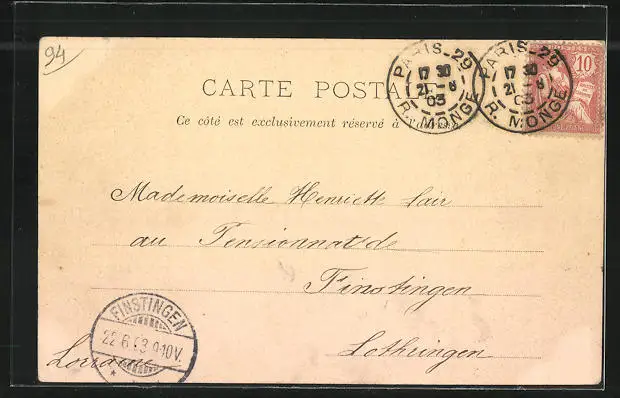 94
PARIS-29
17 30
21 - 6
03
R. MONGE
PARIS-29
17 30
21 - 6
03
R. MONGE
10
CARTE POSTALE
Ce côté est exclusivement réservé à l'adresse
Mademoiselle Henriette Lair
au Pensionnat de
Finstingen
Lothringen
Lorraine
FINSTINGEN
22.6.03.9-10V.